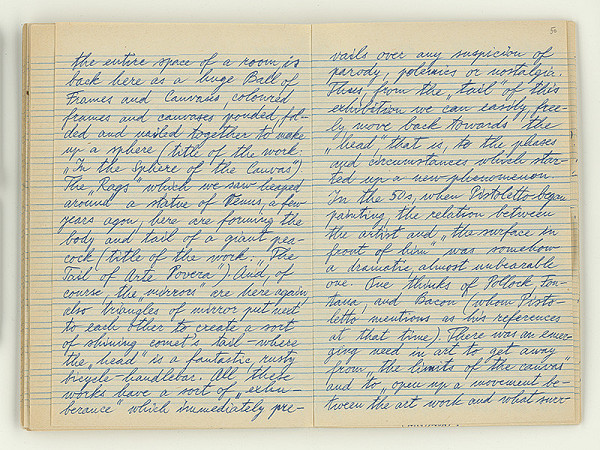 the entire space of a room is
back here as a huge Ball of
Frames and Canvases coloured
frames and canvases pounded, fol-
ded and nailed together to make
up a sphere (title of the work:
„In the Sphere of the Canvas")
The „Rags" which we saw heeped
around a statue of Venus, a few
years agon, here are forming the
body and tail of a giant pea-
cock (title of the work: „The
Tail of Arte Povera") And, of
course, the „mirrors" are here again
also: triangles of mirror put next
to each other to create a sort
of shining comet's tail – where
the „head" is a fantastic, rusty
bicycle-handlebar. All these
works have a sort of „exhu-
berance" which immediately pre-
50
vails over any suspicion of
parody, polemics or nostalgia.
Thus, from the „tail" of this
exhibition we can easily, free-
ly move back towards the
„head", that is, to the phases
and circumstances which star-
ted up a new phenomenon.
In the 50s, when Pistoletto began
painting, the relation between
the artist and „the surface in
front of him" was somehow
a dramatic, almost unbearable
one. One thinks of Pollock, Fon-
tana, and Bacon (whom Pisto-
letto mentions as his references
at that time). There was an emer-
ging need in art to get away
from „the limits of the canvas"
and to „open up a movement be-
tween the art work and what surr-